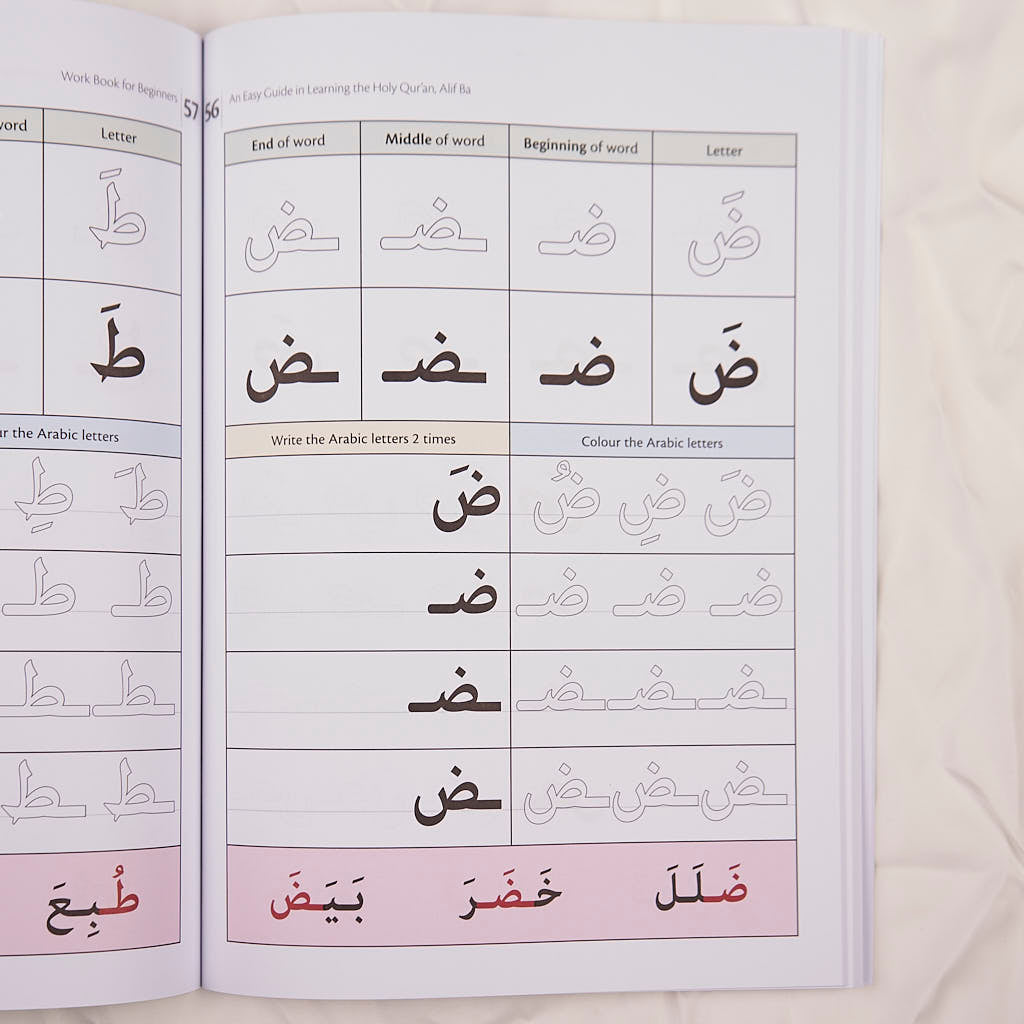 56 An Easy Guide in Learning the Holy Qur'an, Alif Ba
End of word Middle of word Beginning of word Letter
ضَ ضـ ـضـ ـض
ضَ ضـ ـضـ ـض
Write the Arabic letters 2 times Colour the Arabic letters
ضَ ضِ ضُ ضَ
ضـ ضـ ضـ ضـ
ـضـ ـضـ ـضـ ـضـ
ـض ـض ـض ـض
ضَلَلَ خَضَرَ بَيَضَ
Work Book for Beginners 57
Letter
طَ
طَ
the Arabic letters
طَ طِ
طـ طـ
ـطـ ـطـ
ـط ـط
طُبِعَ